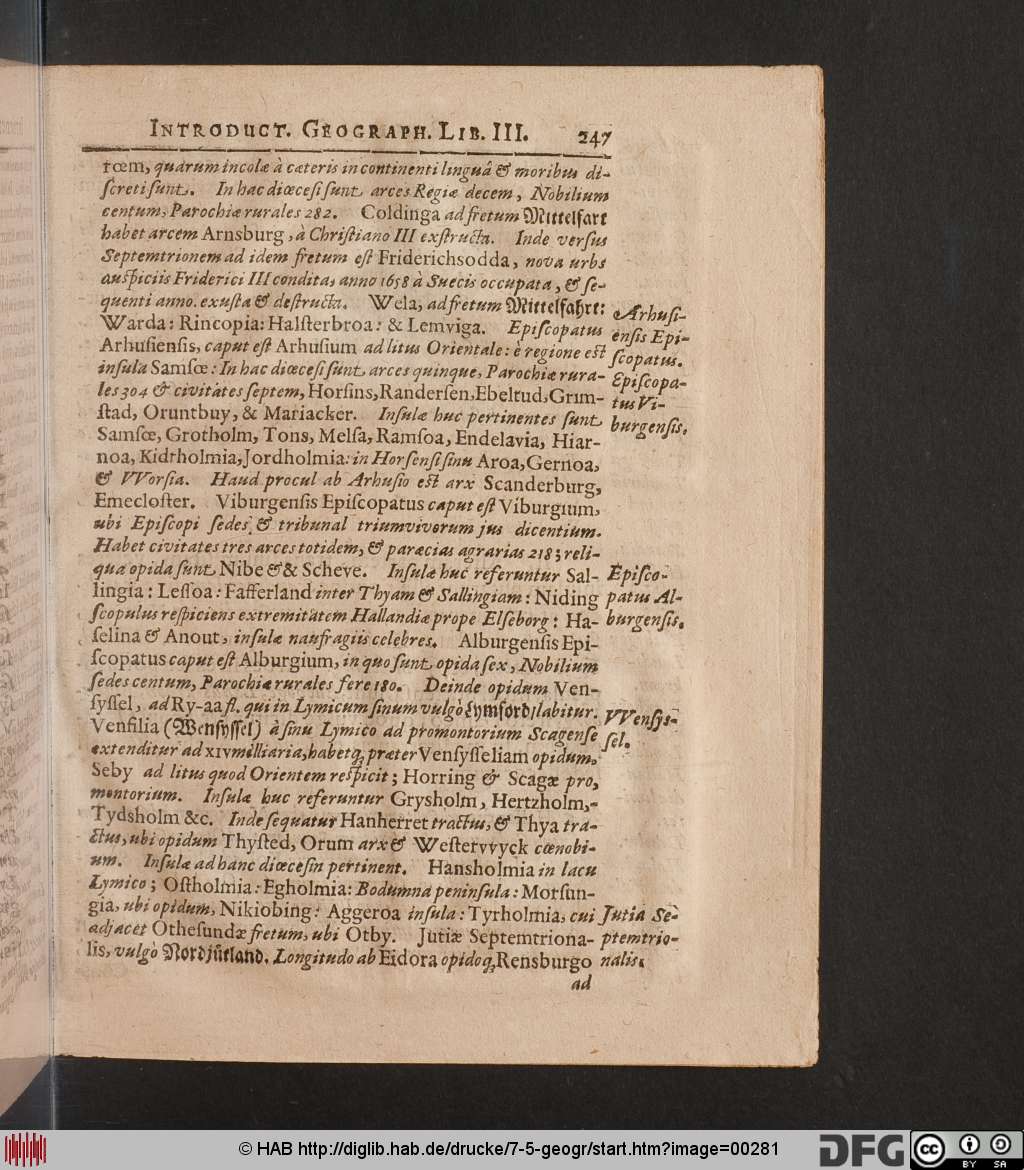 INTRODUCT. GEOGRAPH. LIB. III. 247
rœm, quarum incolæ à cæteris in continenti linguâ & moribus di-
ſcreti ſunt. In hac diœceſi ſunt arces Regiæ decem, Nobilium
centum, Parochiæ rurales 282. Coldinga ad fretum Mittelfart
habet arcem Arnsburg, à Chriſtiano III exſtructa. Inde verſus
Septemtrionem ad idem fretum eſt Friderichsodda, nova urbs
auſpiciis Friderici III condita, anno 1658 à Suecis occupata, & ſe-
quenti anno. exuſta & deſtructa. Wela, ad fretum Mittelfahrt:
Warda: Rincopia: Halſterbroa: & Lemviga. Epiſcopatus
Arhuſienſis, caput eſt Arhuſium ad litus Orientale: è regione eſt
inſula Samſœ: In hac diœceſi ſunt arces quinque, Parochiæ rura-
les 304 & civitates ſeptem, Horſins, Randerſen, Ebeltud, Grim-
ſtad, Oruntbuy, & Mariacker. Inſulæ huc pertinentes ſunt
Samſœ, Grotholm, Tons, Melſa, Ramſoa, Endelavia, Hiar-
noa, Kidrholmia, Jordholmia: in Horſenſi ſinu Aroa, Gernoa,
& VVorſia. Haud procul ab Arhuſio eſt arx Scanderburg,
Emecloſter. Viburgenſis Epiſcopatus caput eſt Viburgium,
ubi Epiſcopi ſedes, & tribunal triumvivorum jus dicentium.
Habet civitates tres arces totidem, & paræcias agrarias 218; reli-
qua opida ſunt Nibe && Scheve. Inſulæ huc referuntur Sal-
lingia: Leſſoa: Fafferland inter Thyam & Sallingiam: Niding
ſcopulus reſpiciens extremitatem Hallandiæ prope Elſeborg: Ha-
ſelina & Anout, inſulæ naufragiis celebres. Alburgenſis Epi-
ſcopatus caput eſt Alburgium, in quo ſunt opida ſex, Nobilium
ſedes centum, Parochiæ rurales fere 180. Deinde opidum Ven-
ſyſſel, ad Ry-aa fl. qui in Lymicum ſinum vulgò Lymford, labitur.
Venſilia (Wenſyſſel) à ſinu Lymico ad promontorium Scagenſe
extenditur ad XIV milliaria, habetq; præter Venſyſſeliam opidum,
Seby ad litus quod Orientem reſpicit; Horring & Scagæ pro,
montorium. Inſulæ huc referuntur Grysholm, Hertzholm,-
Tydsholm &c. Inde ſequatur Hanherret tractus, & Thya tra-
ctus, ubi opidum Thyſted, Orum arx & Weſtervvyck cœnobi-
um. Inſulæ ad hanc diœceſin pertinent. Hansholmia in lacu
Lymico; Oſtholmia: Egholmia: Bodumna peninſula: Morſun-
gia, ubi opidum, Nikiobing: Aggeroa inſula: Tyrholmia, cui
adjacet Otheſundæ fretum, ubi Otby. Jutiæ Septemtriona-
lis, vulgò Nordjütland. Longitudo ab Eidora opidoq; Rensburgo
ad
Arhuſi-
enſis Epi-
ſcopatus.
Epiſcopa-
tus Vi-
burgenſis.
Epiſco-
patus Al-
burgenſis.
VVenſyſ-
ſel.
Jutia Se-
ptemtrio-
nalis.
© HAB http://diglib.hab.de/drucke/7-5-geogr/start.htm?image=00281
DFG
cc
BY SA